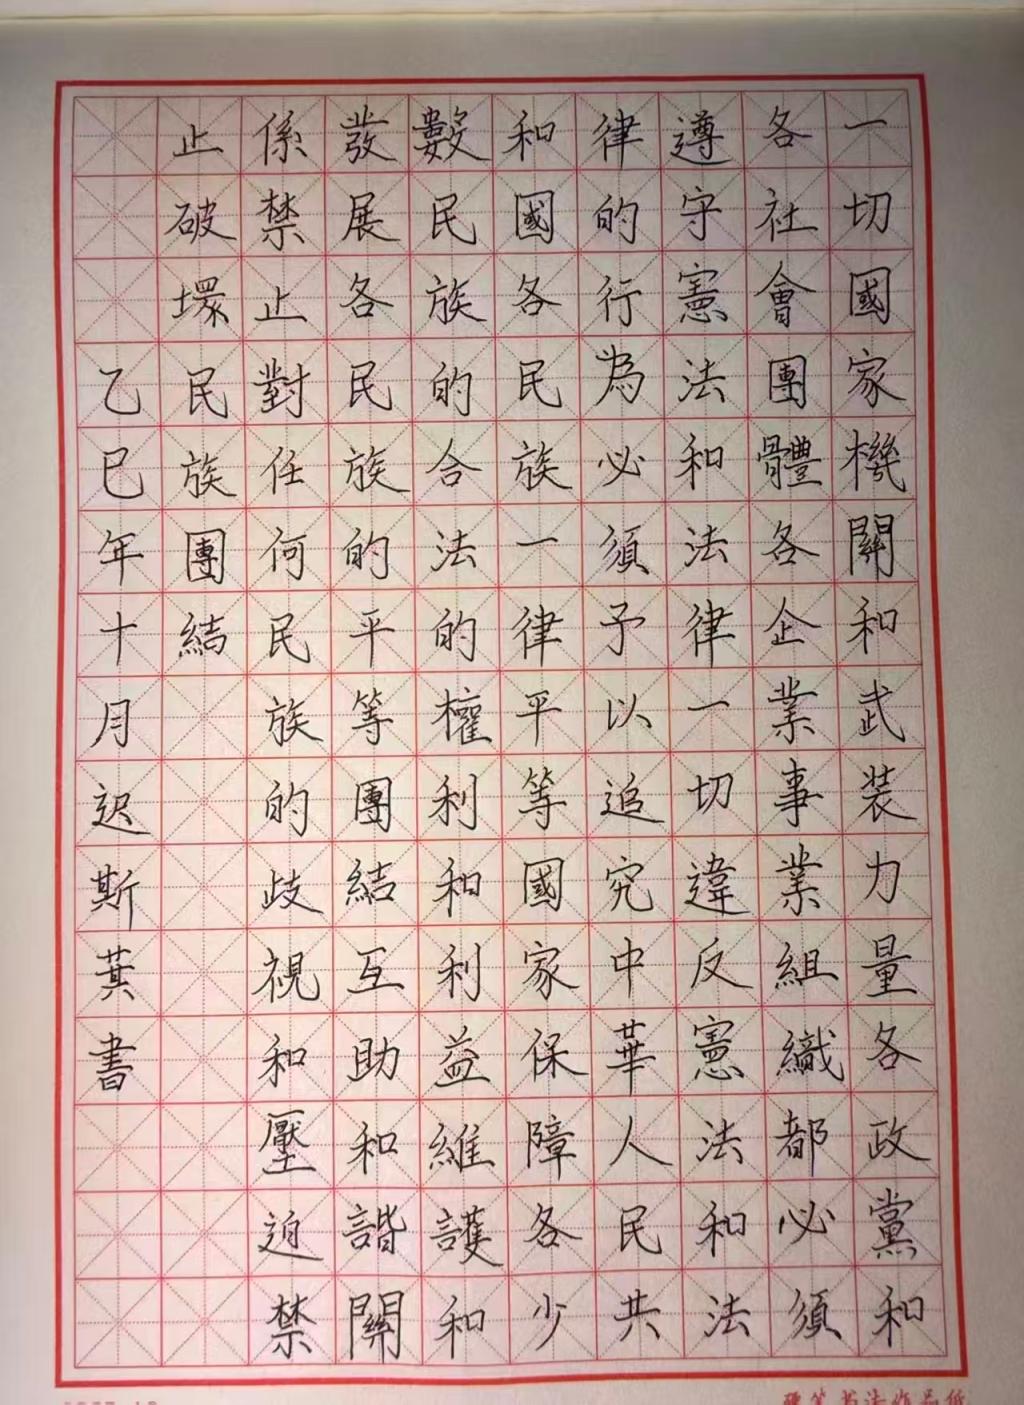 一切國家機關和武装力量各政黨和
各社會團體各企業事業組織都必須
遵守憲法和法律一切違反憲法和法
律的行為必須予以追究中華人民共
和國各民族一律平等國家保障各少
數民族的合法的權利和利益維護和
發展各民族的平等團結互助和諧關
係禁止對任何民族的歧視和壓迫禁
止破壞民族團結
乙巳年十月迟斯萁書
硬笔书法作品纸